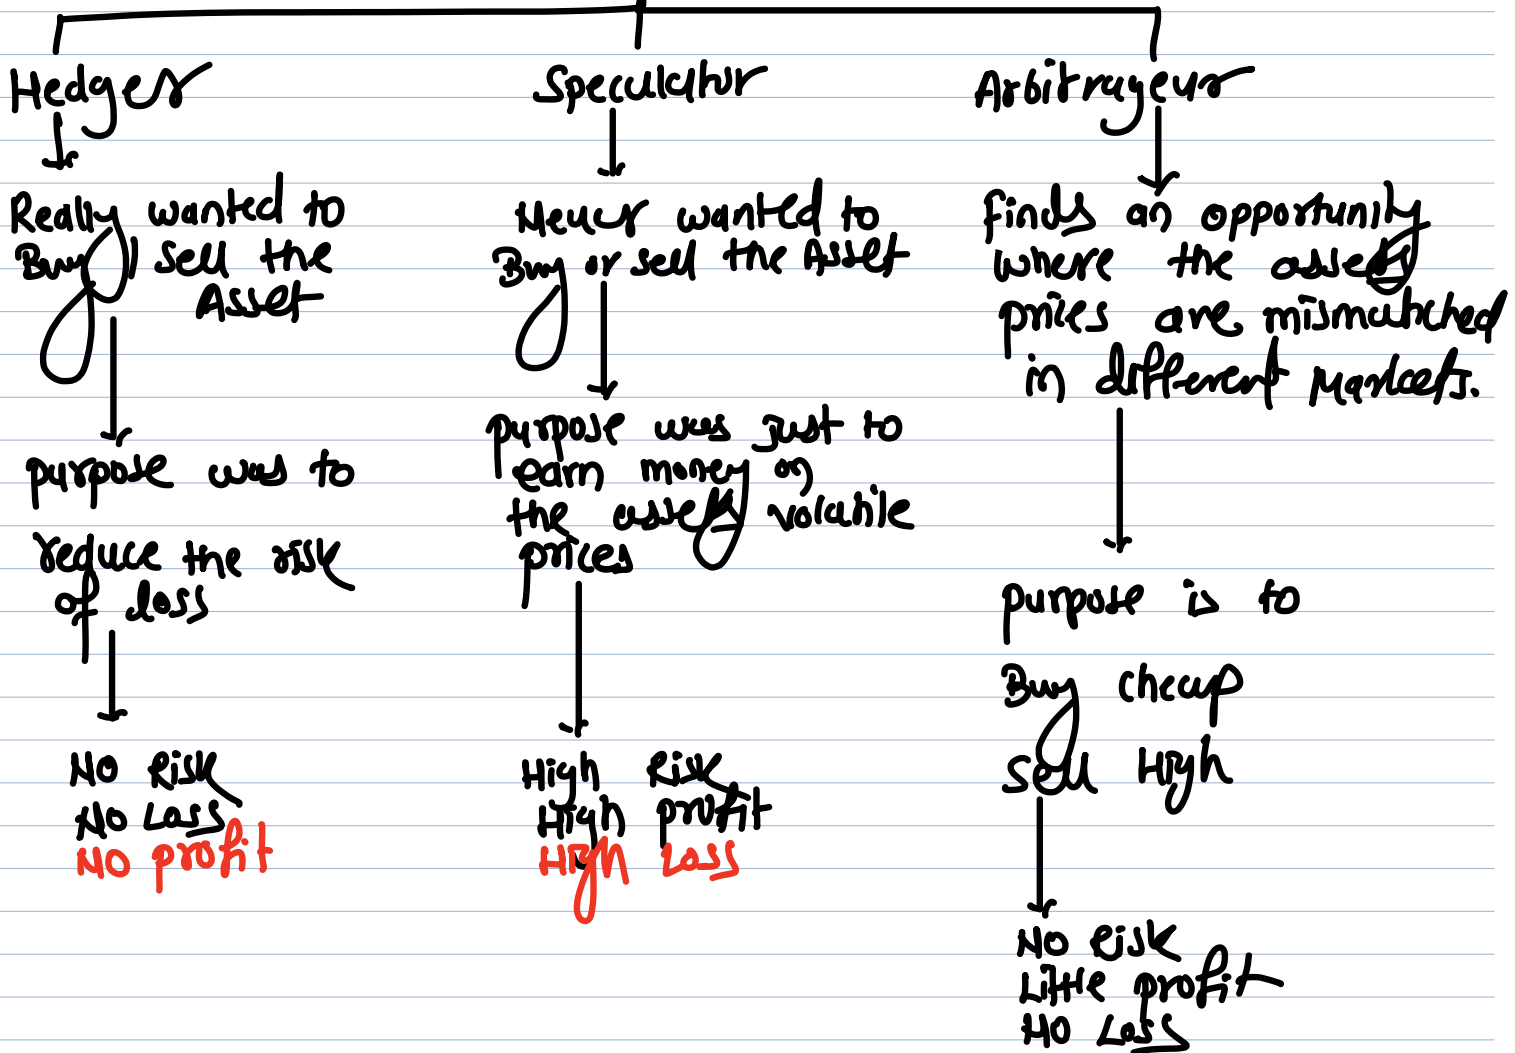 Hedger
Really wanted to
Buy / sell the
Asset
purpose was to
reduce the risk
of loss
No Risk
No Loss
No profit
Speculator
Never wanted to
Buy or sell the Asset
purpose was just to
earn money on
the assets volatile
prices
High Risk
High profit
High Loss
Arbitrageur
finds an opportunity
where the assets
prices are mismatched
in different Markets.
purpose is to
Buy cheap
Sell High
No Risk
Little profit
No Loss